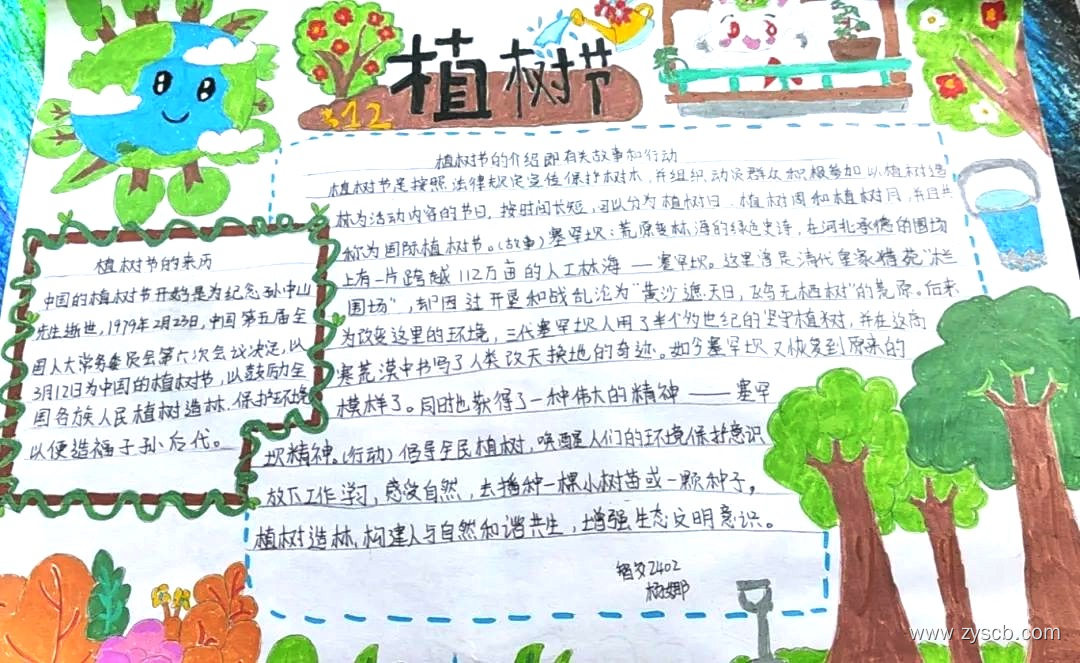 植树节
312
植树节的来历
中国的植树节开始是为纪念孙中山
先生逝世,1979年2月23日,中国第五届全
国人大常务委员会第六次会议决定,以
3月12日为中国的植树节,以鼓励全
国各族人民植树造林,保护环境
以便造福子孙后代。
植树节的介绍即有关故事和行动
植树节是按照法律规定宣传保护树木,并组织动员群众积极参加以植树造
林为活动内容的节日。按时间长短,可以分为植树日、植树周和植树月,并且共
称为国际植树节。(故事)塞罕坝:荒原变林海的绿色史诗,在河北承德的围场
上有一片跨越112万亩的人工林海——塞罕坝。这里曾是清代皇家猎苑"木兰
围场",却因过开垦和战乱沦为"黄沙遮天日,飞鸟无栖树"的荒原。后来
为改变这里的环境,三代塞罕坝人用了半个多世纪的坚守植树,并在这高
寒荒漠中书写了人类改天换地的奇迹。如今塞罕坝又恢复到原来的
模样了。同时也获得了一种伟大的精神——塞罕
坝精神。(行动)倡导全民植树,唤醒人们的环境保护意识
放下工作学习,感受自然,去播种一棵小树苗或一颗种子,
植树造林,构建人与自然和谐共生,增强生态文明意识。
2402
www.zyscb.com